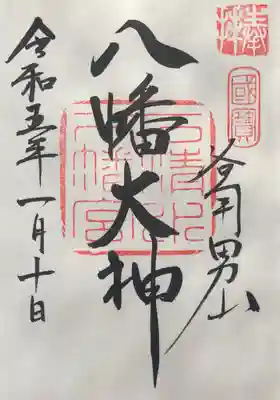 奉拝
國寶
男山
八幡大神
石清水
八幡宮
令和五年一月十日